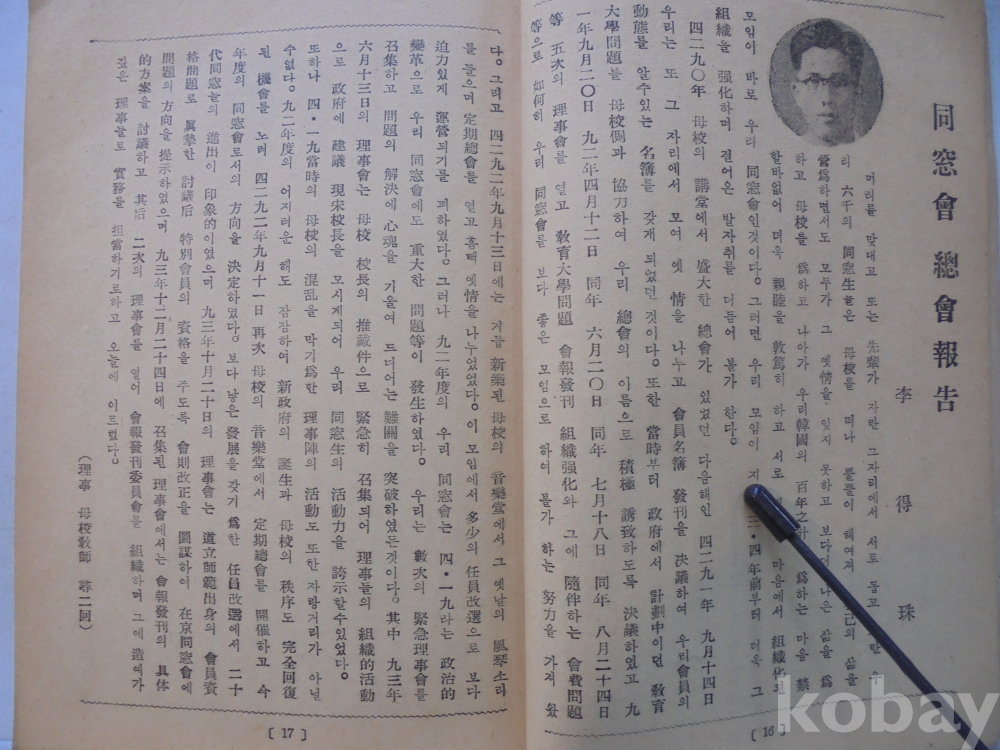 同窓會 總會報告
李得珠
머리를 맞대고 또는 先輩가 자란 그자리에서 서로 돕고
리 六千의 同窓生들은 母校를 떠나 뿔뿔이 헤여져 己의 삶을
營爲하면서도 모두가 그 옛情을 잊지 못하고 보다더 나은 삶을
하고 母校를 爲하고 나아가 우리韓國의 百年之計 爲하는 마음 禁
할바없어 더욱 親睦을 敦篤히 하고 서로 마음에서 組織化된
모임이 바로 우리 同窓會인것이다. 그러면 우리 모임이 三·四年前부터 더욱 그
組織을 强化하며 걸어온 발자취를 더듬어 볼가 한다.
四二九○年 母校의 講堂에서 盛大한 總會가 있었던 다음해인 四二九一年 九月十四日
우리는 또 그 자리에서 모여 옛 情을 나누고 會員名簿 發刊을 決議하여 우리會員의
動態를 알수있는 名簿를 갖게 되었던 것이다. 또한 當時부터 政府에서 計劃中이던 敎育
大學問題를 母校側과 協力하여 우리 總會의 이름으로 積極 誘致하도록 決議하였고 九
一年九月二○日 九二年四月十二日 同年 六月二○日 同年 七月十八日 同年 八月二十四日
等 五次의 理事會를 열고 敎育大學問題 會報發刊 組織强化와 그에 隨伴하는 會費問題
等으로 如何히 우리 同窓會를 보다 좋은 모임으로 하여 볼가 하는 努力을 가져 왔
[ 16 ]
다. 그리고 四二九二年九月十三日에는 저 新築된 母校의 音樂堂에서 그 옛날의 風琴소리
를 들으며 定期總會를 열고 흠뻑 옛情을 나누었었다. 이 모임에서 多少의 任員改選으로 보다
迫力있게 運營되기를 꾀하였다. 그러나 九二年度의 우리 同窓會는 四·一九라는 政治的
變革으로 우리 同窓會에도 重大한 問題等이 發生하였다. 우리는 數次의 緊急理事會를
召集하고 問題의 解決에 心魂을 기울여 드디어는 難關을 突破하였든것이다. 其中 九三年
六月十三日의 理事會는 母校 校長의 推戴件으로 緊急히 召集되어 理事들의 組織的活動
으로 政府에 建議 現宋校長을 모시게되어 우리 同窓生의 活動力을 誇示할수있었다.
또하나 四·一九當時의 母校의 混乱을 막기爲한 理事陣의 活動도 또한 자랑거리가 아닐
수없다. 九二年度의 어지러운 해도 잠잠하여 新政府의 誕生과 母校의 秩序도 完全回復
된 機會를 노려 四二九二年九月十一日 再次 母校의 音樂堂에서 定期總會를 開催하고 今
年度의 同窓會로서의 方向을 決定하였다. 보다 낳은 發展을 갖기 爲한 任員改選에서 二十
代同窓들의 進出이 印象的이였으며 九三年十月二十日의 理事會는 道立師範出身의 會員資
格問題로 眞摯한 討議后 特別會員의 資格을 주도록 會則改正을 圖謀하여 在京同窓會에
問題의 方向을 提示하였으며 九三年十二月二十四日에 召集된 理事會에서는 會報發刊의 具体
的方案을 討議하고 其后 二次의 理事會를 열어 會報發刊委員會를 組織하며 그에 造예가
깊은 理事들로 實務를 担當하기로하고 오늘에 이르렀다.
(理事 母校敎師 尋一回)
[ 17 ]
kobay